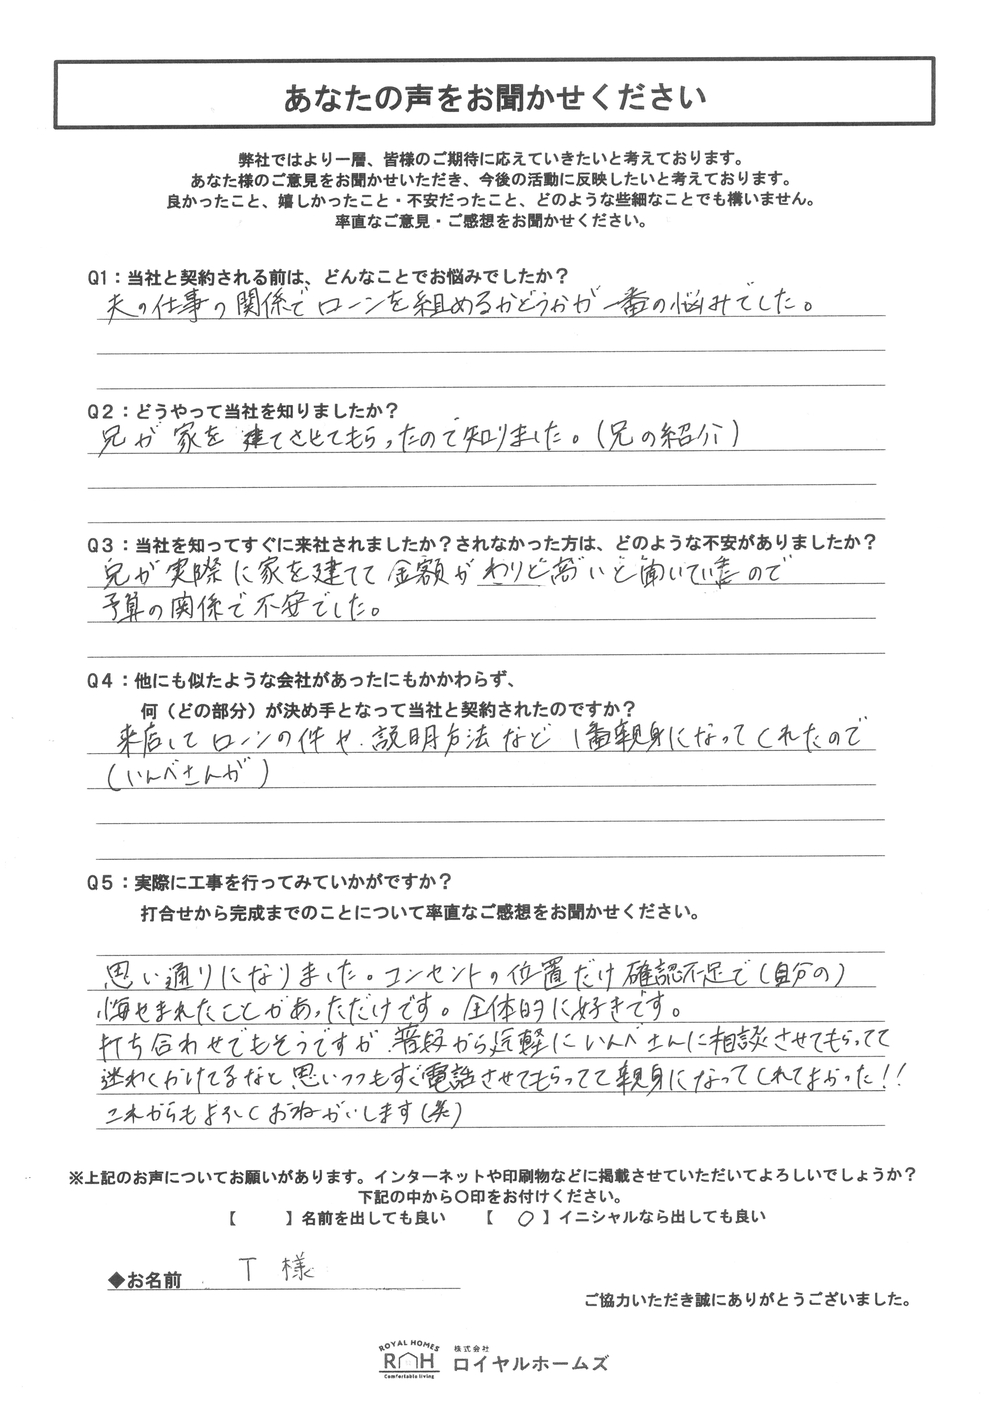 あなたの声をお聞かせください
弊社ではより一層、皆様のご期待に応えていきたいと考えております。
あなた様のご意見をお聞かせいただき、今後の活動に反映したいと考えております。
良かったこと、嬉しかったこと・不安だったこと、どのような些細なことでも構いません。
率直なご意見・ご感想をお聞かせください。
Q1：当社と契約される前は、どんなことでお悩みでしたか？
夫の仕事の関係でローンを組めるかどうかが一番の悩みでした。
Q2：どうやって当社を知りましたか？
兄が家を建てさせてもらったので知りました。（兄の紹介）
Q3：当社を知ってすぐに来社されましたか？されなかった方は、どのような不安がありましたか？
兄が実際に家を建てて金額がわりと高いと聞いていたので
予算の関係で不安でした。
Q4：他にも似たような会社があったにもかかわらず、
何（どの部分）が決め手となって当社と契約されたのですか？
来店してローンの件や説明方法など1番親身になってくれたので
（いんべさんが）
Q5：実際に工事を行ってみていかがですか？
打合せから完成までのことについて率直なご感想をお聞かせください。
思い通りになりました。コンセントの位置だけ確認不足で（自分の）
悔やまれたことがあっただけです。全体的に好きです。
打ち合わせでもそうですが普段から気軽にいんべさんに相談させてもらってて
迷わくかけてるなと思いつつもすぐ電話させてもらってて親身になってくれてよかった!!
これからもよろしくおねがいします（笑）
※上記のお声についてお願いがあります。インターネットや印刷物などに掲載させていただいてよろしいでしょうか？
下記の中から〇印をお付けください。
【　　】名前を出しても良い　【 〇 】イニシャルなら出しても良い
◆お名前 T 様
ご協力いただき誠にありがとうございました。
ROYAL HOMES
RH
Comfortable living
株式会社
ロイヤルホームズ